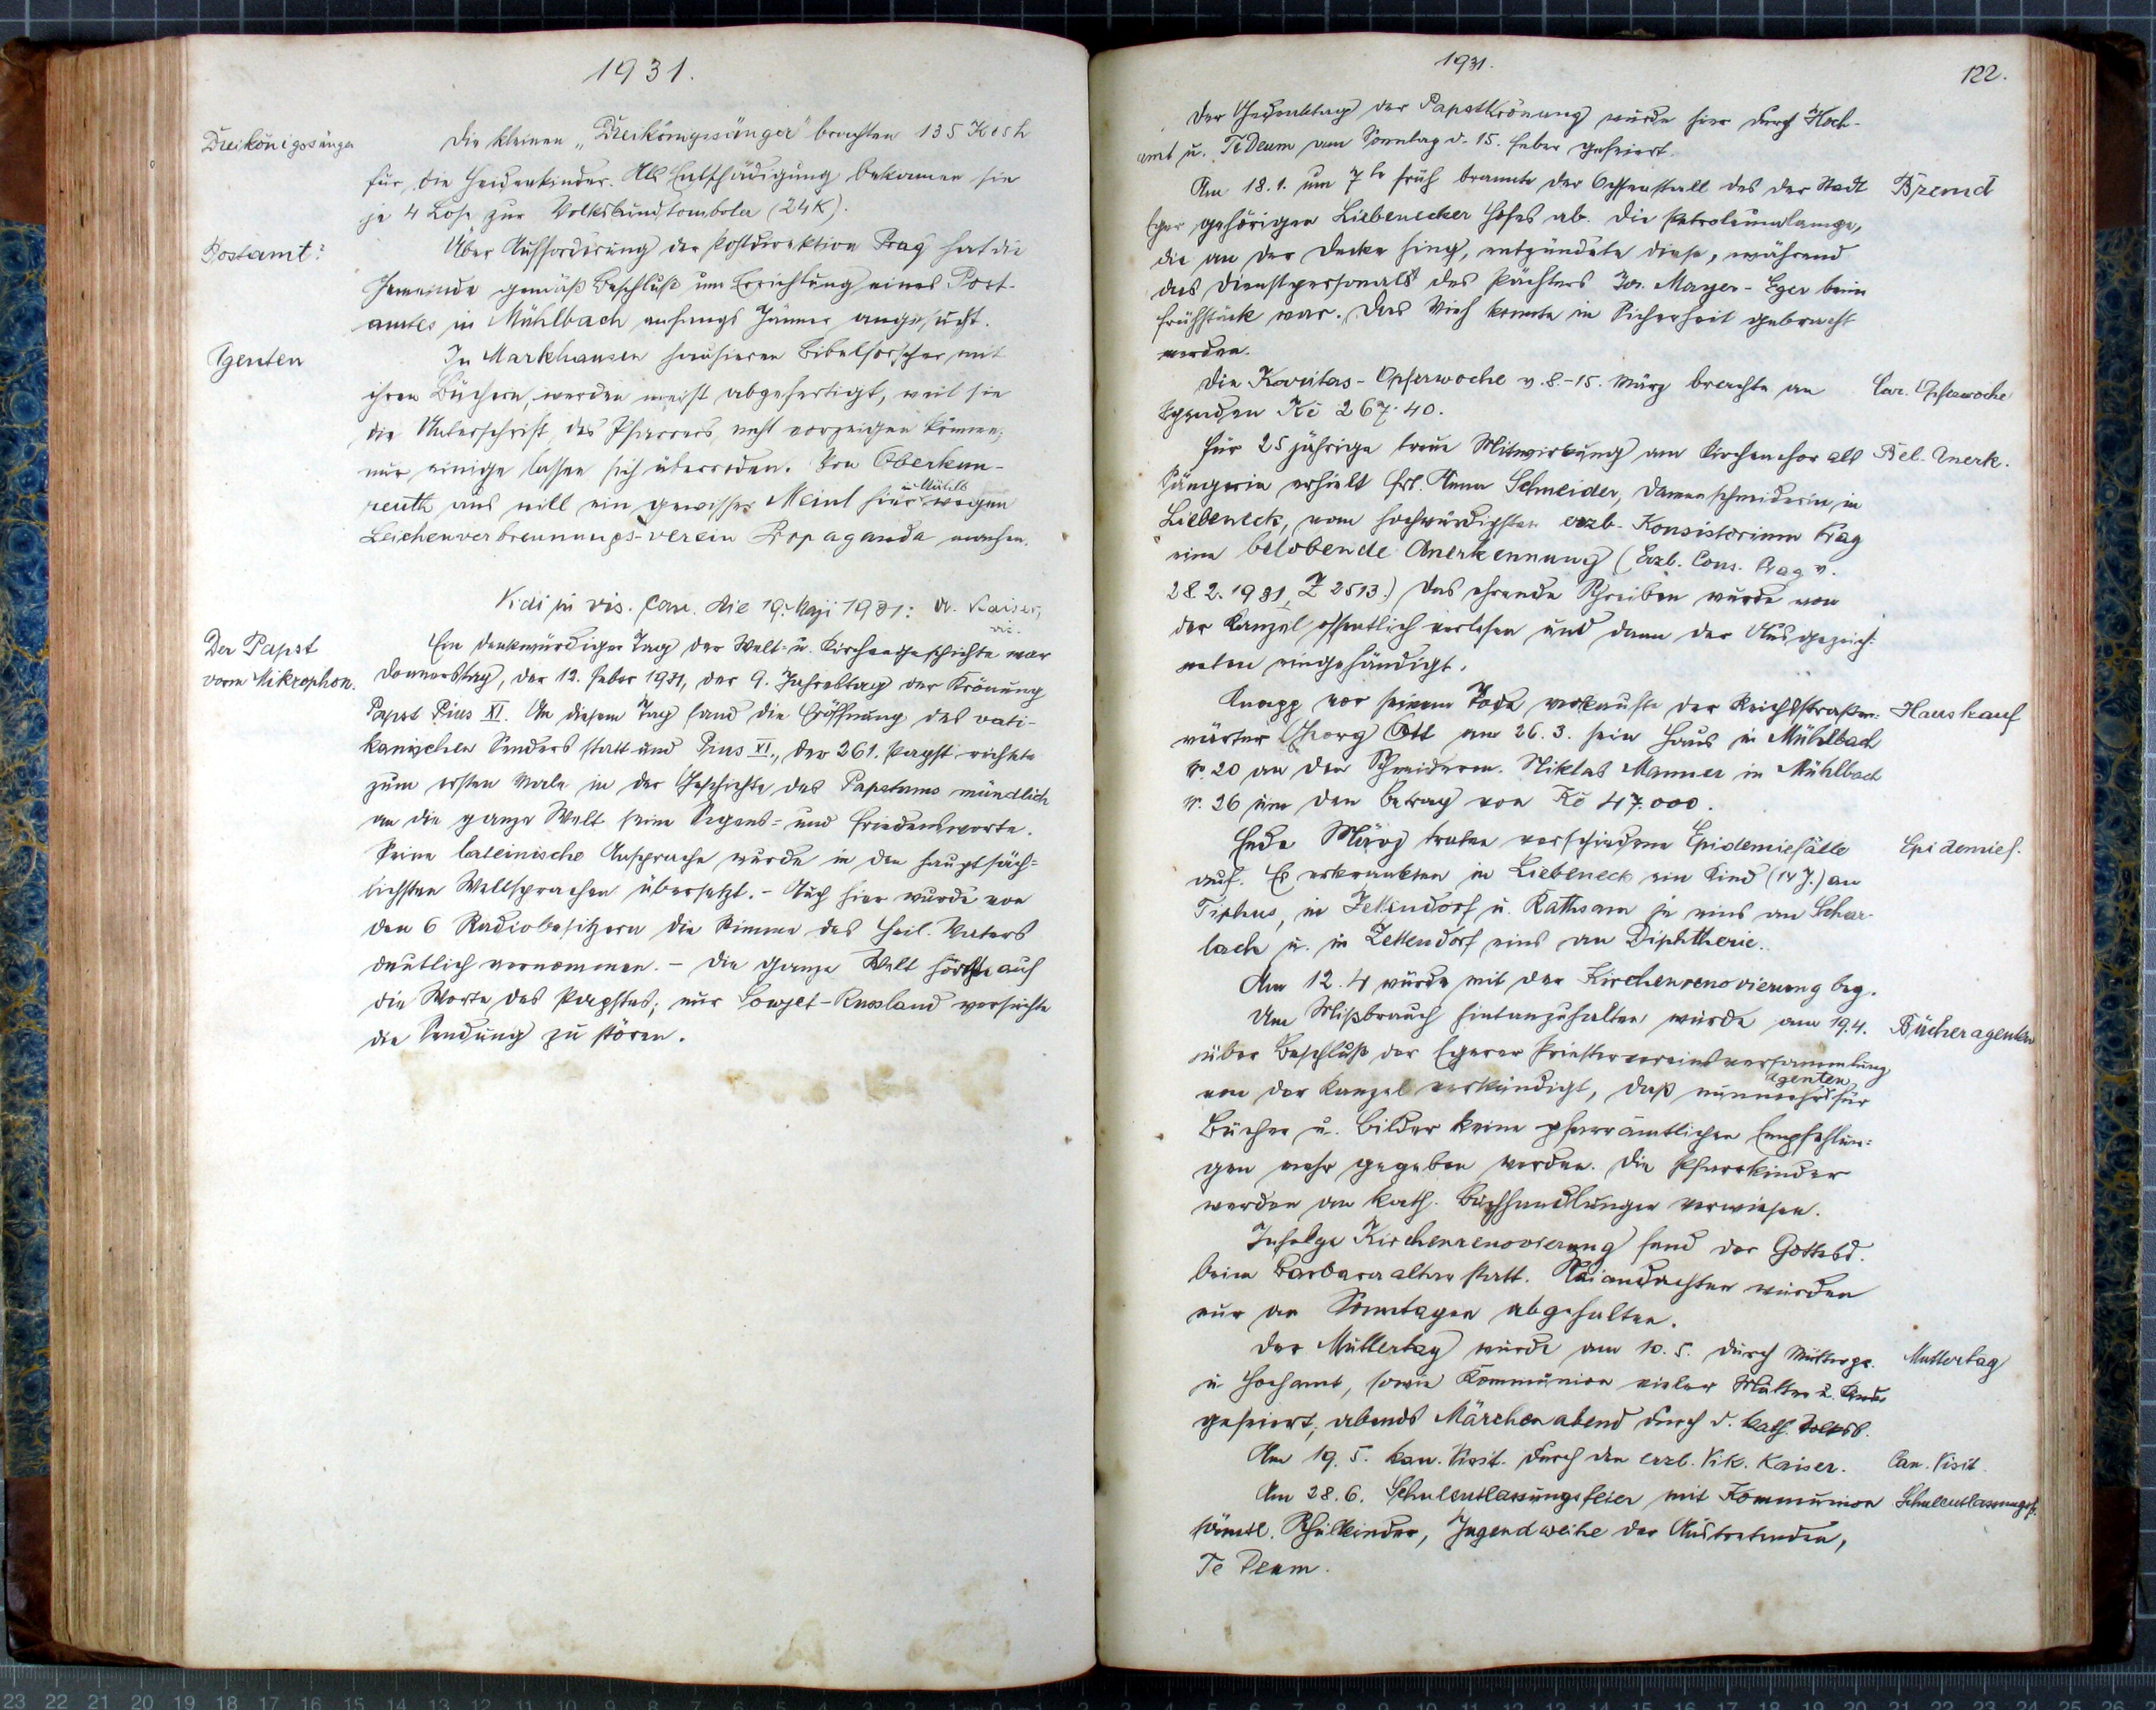 1931.
Dreikönigssänger
Die kleinen „Dreikönigssänger" brachten 135 K 05 h
für die Heidenkinder. Als Entschädigung bekamen sie
je 4 Lose zur Volksbundtombola (24 K).
Postamt?
Über Aufforderung der Postdirektion Prag hat die
Gemeinde gemäß Beschluß um Errichtung eines Post-
amtes in Mühlbach anfangs Jänner angesucht.
Agenten
In Markhausen hausieren Bibelforscher mit
ihren Büchern, werden meist abgefertigt, weil sie
die Unterschrift des Pfarrers nicht vorzeigen können;
nur einige lassen sich überreden. Von Oberkun-
in Mühlb.
reuth aus will ein gewisser Meinl hier wegen
Leichenverbrennungs-verein Propaganda machen.
Vidi in vis. can. die 19. Maji 1931: A. Kaiser,
vic.
Der Papst
vorm Mikrophon.
Ein denkwürdiger Tag der Welt- u. Kirchengeschichte war
Donnerstag, der 12. Feber 1931, der 9. Jahrestag der Krönung
Papst Pius XI. An diesem Tag fand die Eröffnung des vati-
kanischen Senders statt und Pius XI., der 261. Papst richtete
zum ersten Male in der Geschichte des Papstums mündlich
an die ganze Welt seine Segens- und Friedensworte.
Seine lateinische Ansprache wurde in den hauptsäch-
lichsten Weltsprachen übersetzt. - Auch hier wurde von
den 6 Radiobesitzern die Stimme des Heil. Vaters
deutlich vernommen. - Die ganze Welt horchte auf
die Worte des Papstes; nur Sowjet-Russland versuchte
die Sendung zu stören.
1931.
122.
Der Gedenktag der Papstkrönung wurde hier durch Hoch-
amt u. Te Deum am Sonntag d. 15. Feber gefeiert.
Am 18.1. um 7 h früh brannte der Ochsenstall des der Stadt
Brand
Eger gehörigen Liebenecker Hofes ab. Die Petroleumlampe,
die an der Decke hing, entzündete diese, während
das Dienstpersonal des Pächters Jos. Mayer-Eger beim
Frühstück war. Das Vieh konnte in Sicherheit gebracht
werden.
Die Karitas-Opferwoche v. 8.-15. März brachte an
Car. Opferwoche
Spenden Kč 267·40.
Für 25 jährige treue Mitwirkung am Kirchenchor als
Bel. Anerk.
Sängerin erhielt Frl. Anna Schneider, Damenschneiderin, in
Liebeneck, vom hochwürdigsten erzb. Konsistorium Prag
eine belobende Anerkennung (Erzb. Cons. Prag v.
28.2.1931, Z 2513.) Das ehrende Schreiben wurde von
der Kanzel öffentlich verlesen und dann der Ausgezeich-
neten eingehändigt.
Knapp vor seinem Tode verkaufte der Reichsstraßen-
Hauskauf
wärter Georg Ott am 26.3. sein Haus in Mühlbach
Nr. 20 an den Schneiderm. Niklas Manner in Mühlbach
Nr. 26 um den Betrag von Kč 47.000.
Ende März traten verschiedene Epidemiefälle
Epidemief.
auf. Es erkrankten in Liebeneck ein Kind (14 J.) an
Tiphus, in Zettendorf u. Rathsam je eins an Schar-
lach u. in Zettendorf eins an Diphtherie.
Am 12.4 wurde mit der Kirchenrenovierung beg.
Um Mißbrauch hintanzuhalten wurde am 19.4.
Bücheragenten
über Beschluß der Egerer Priestervereinsversammlung
von der Kanzel verkündigt, daß nunmehr Agenten für
Bücher u. Bilder keine pfarrämtlichen Empfehlun-
gen mehr gegeben werden. Die Pfarrkinder
werden an kath. Buchhandlungen verwiesen.
Infolge Kirchenrenovierung fand der Gottesd.
beim Barbaraaltar statt. Maiandachten wurden
nur an Sonntagen abgehalten.
Der Muttertag wurde am 10.5. durch
Muttertag
u. Hochamt, sowie Kommunion vieler Mütter u. Kinder
gefeiert; abends Märchenabend durch d. kath. Volksb.
Am 19.5. kan. Visit. durch den erzb. Vik. Kaiser.
Can. Visit.
Am 28.6. Schulentlassungsfeier mit Kommunion
Schulentlassungsf.
sämtl. Schulkinder, Jugendweihe der Austretenden,
Te Deum.